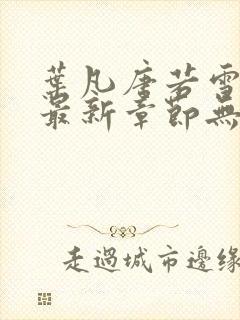 葉凡唐若雪
最新章節無
走過城市邊緣